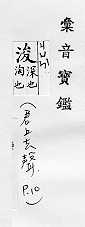 彙音寶鑑
浚 深也 淘也
(君上去聲 P.10)